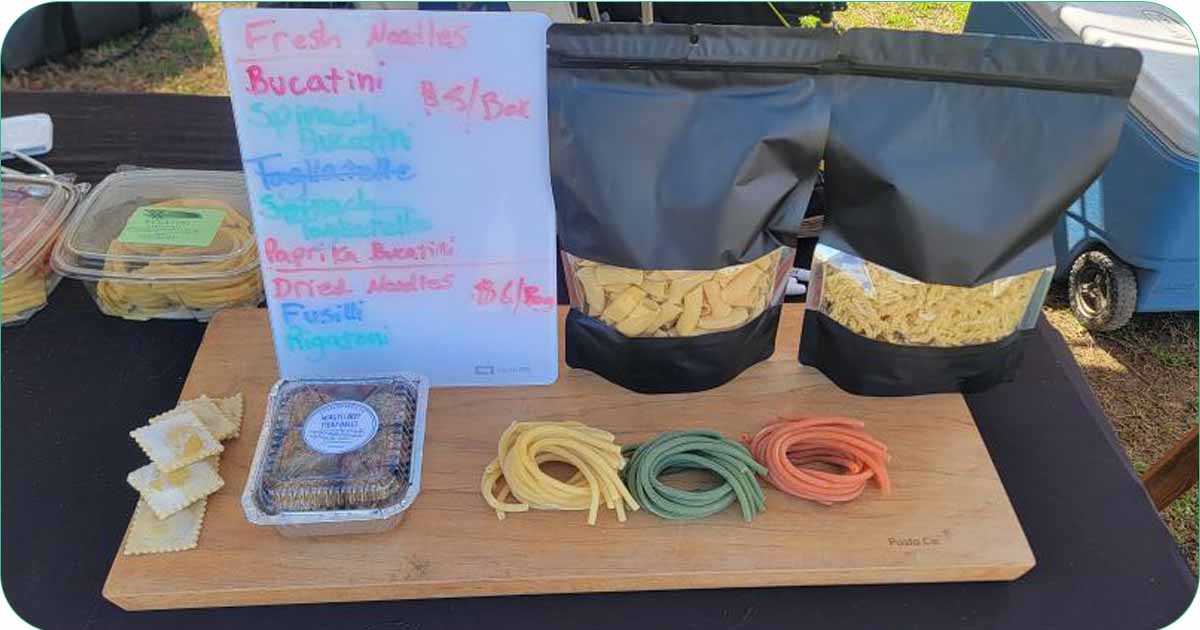 Fresh Noodles
Bucatini
$5/Box
Spinach
Bucatini
Tagliatelle
Spinach
Paprika Bucatini
Dried Noodles
$6/Bag
Fusilli
Rigatoni
MEATBALLS
Pasta Co.